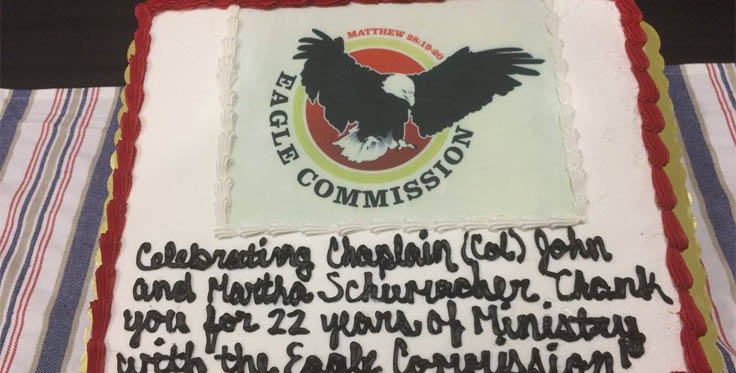 MATTHEW 28:19-20
EAGLE COMMISSION
Celebrating Chaplain (Col) John
and Martha Schumacher. Thank
you for 22 years of Ministry
with the Eagle Commission